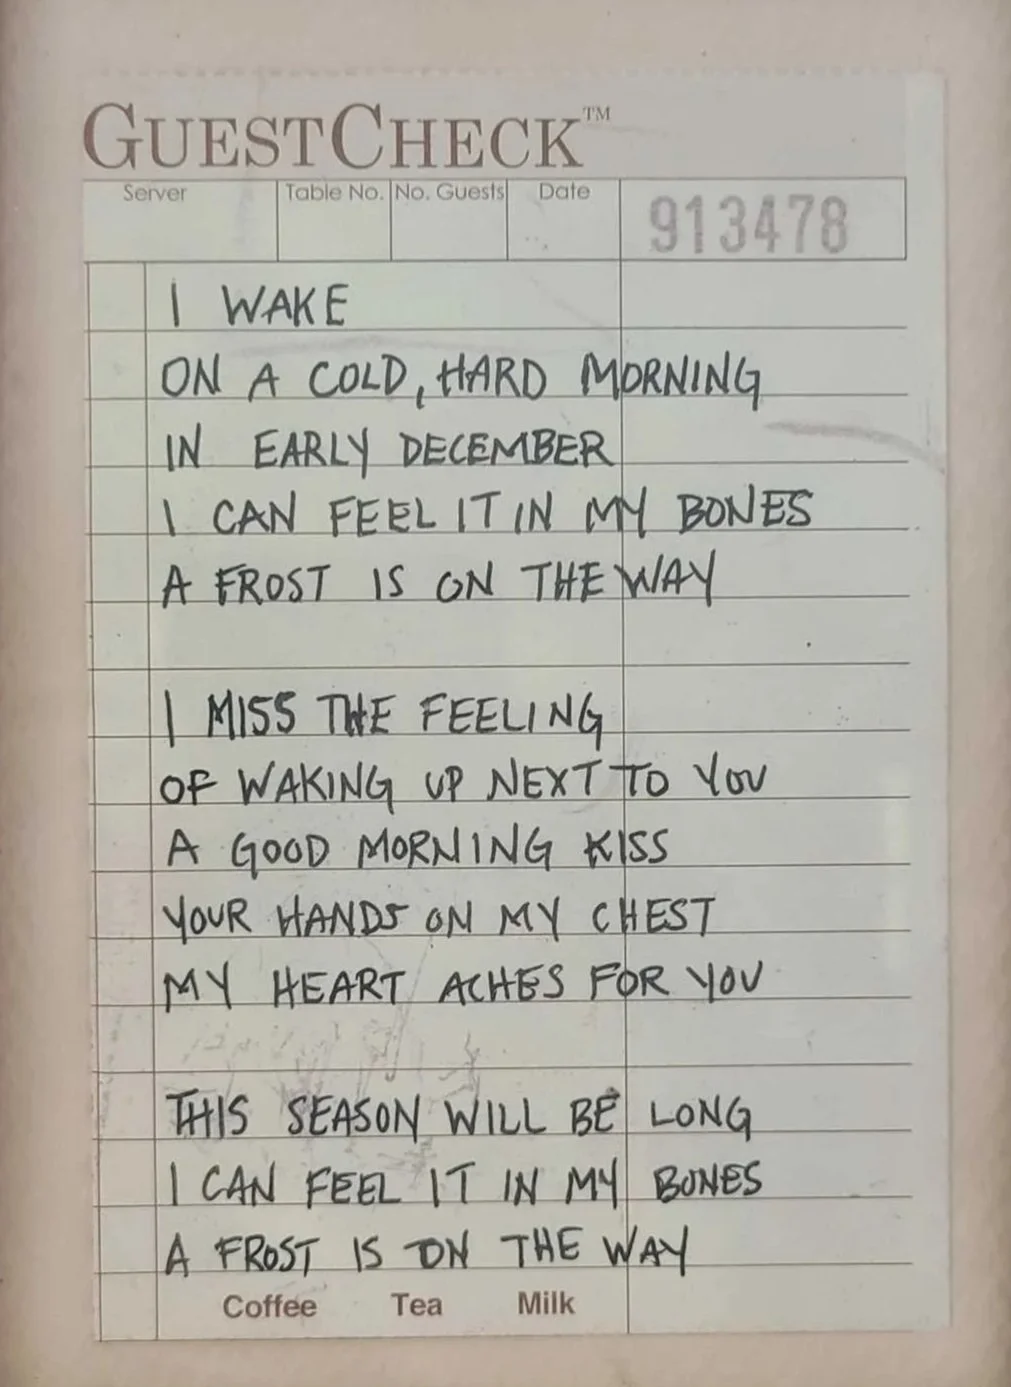 GUESTCHECK™
Server Table No. No. Guests Date 913478
I WAKE
ON A COLD, HARD MORNING
IN EARLY DECEMBER
I CAN FEEL IT IN MY BONES
A FROST IS ON THE WAY
I MISS THE FEELING
OF WAKING UP NEXT TO YOU
A GOOD MORNING KISS
YOUR HANDS ON MY CHEST
MY HEART ACHES FOR YOU
THIS SEASON WILL BE LONG
I CAN FEEL IT IN MY BONES
A FROST IS ON THE WAY
Coffee Tea Milk